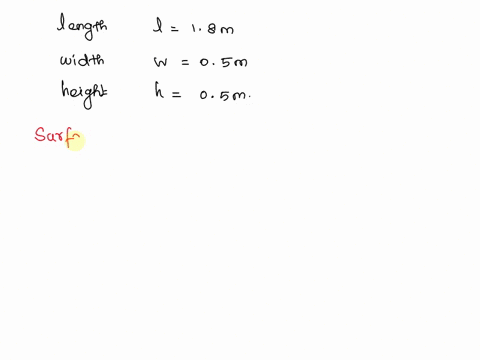 length l = 1.8m
width w = 0.5m
height h = 0.5m.
Surf